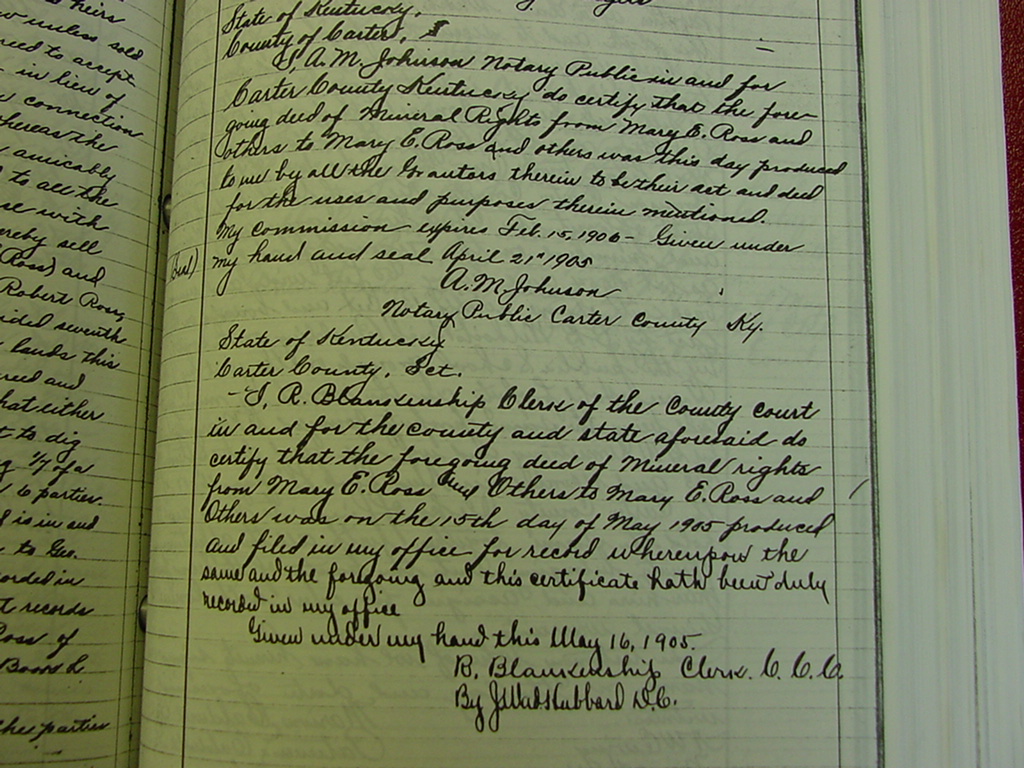 heirs
unless sold
agreed to accept
in lieu of
connection
whereas the
amicably
to all the
with
hereby sell
Ross) and
Robert Ross,
seventh
lands this
and
that either
to dig
1/7 of a
6 parties.
is in and
to Geo.
recorded in
records
Ross of
Book L
the parties
State of Kentucky,
County of Carter,
I, A. M. Johnson Notary Public in and for
Carter County Kentucky do certify that the fore-
going deed of Mineral Rights from Mary E. Ross and
others to Mary E. Ross and others was this day produced
to me by all the Grantors therein to be their act and deed
for the uses and purposes therein mentioned.
My commission expires Feb. 15, 1906 - Given under
(Seal) my hand and seal April 21st 1905
A. M. Johnson
Notary Public Carter County Ky.
State of Kentucky
Carter County, Sct.
- I, R. Blankenship Clerk of the County Court
in and for the county and state aforesaid do
certify that the foregoing deed of Mineral rights
from Mary E. Ross and Others to Mary E. Ross and
Others was on the 15th day of May 1905 produced
and filed in my office for record whereupon the
same and the forgoing and this certificate hath been duly
recorded in my office
Given under my hand this May 16, 1905.
R. Blankenship Clerk. C. C. C.
By Hubbard D.C.